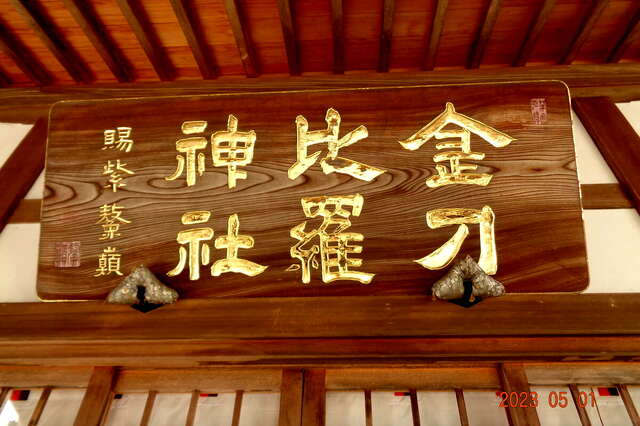 金刀
比羅
神社
賜紫鰲巓
2023 05 01